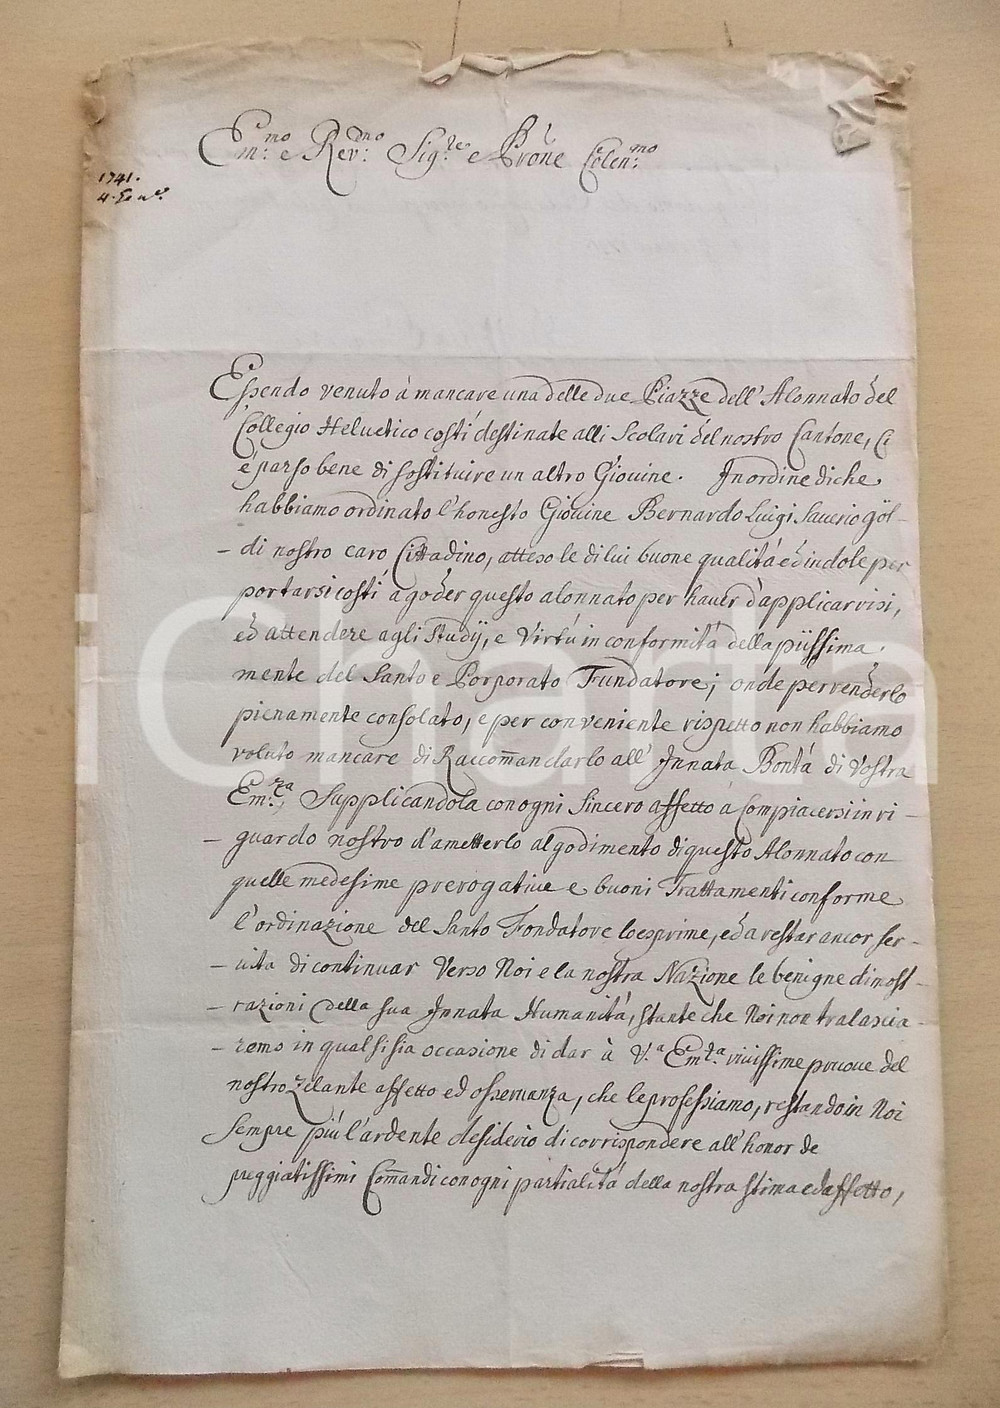 Em:mo e Rev:dmo Sig:re e Prone Colen:mo
1741.
4. Genn.o
Essendo venuto à mancare una delle due Piazze dell' Alonnato del
Collegio Helvetico costí destinate alli Scolari del nostro Cantone, Ci
è parso bene di sostituire un altro Giovine. In ordine di che
habbiamo ordinato l'honesto Giovine Bernardo Luigi Saverio göl-
- di nostro caro Cittadino, atteso le di lui buone qualità ed indole per
portarsi costí à goder questo alonnato per haver d'applicarvisi,
ed attendere agli Studÿ, e Virtú in conformitá della piissima
mente del Santo e Porporato Fundatore; onde per renderlo
pienamente consolato, e per conveniente rispetto non habbiamo
voluto mancare di Raccom̃andarlo all' Innata Bontá di Vostra
Em:za, Supplicandola con ogni Sincero affetto à Compiacersi in ri-
- guardo nostro d'ametterlo al godimento di questo Alonnato con
quelle medesime prerogative e buoni Trattamenti conforme
l'ordinazione del Santo Fondatore lo esprime, ed a restar ancor ser-
- vita di continuar Verso Noi e la nostra Nazione le benigne dimost-
- razioni della sua Innata Humanitá, stante che Noi non tralascia-
- remo in qualsisia occasione di dar à V.a Em:za vivissime pruove del
nostro zelante affetto ed osservanza, che le professiamo, restando in Noi
Sempre piú l'ardente desiderio di corrispondere all' honor de
preggiatissimi Com̃andi con ogni partialitá della nostra stima ed affetto,
iCharta